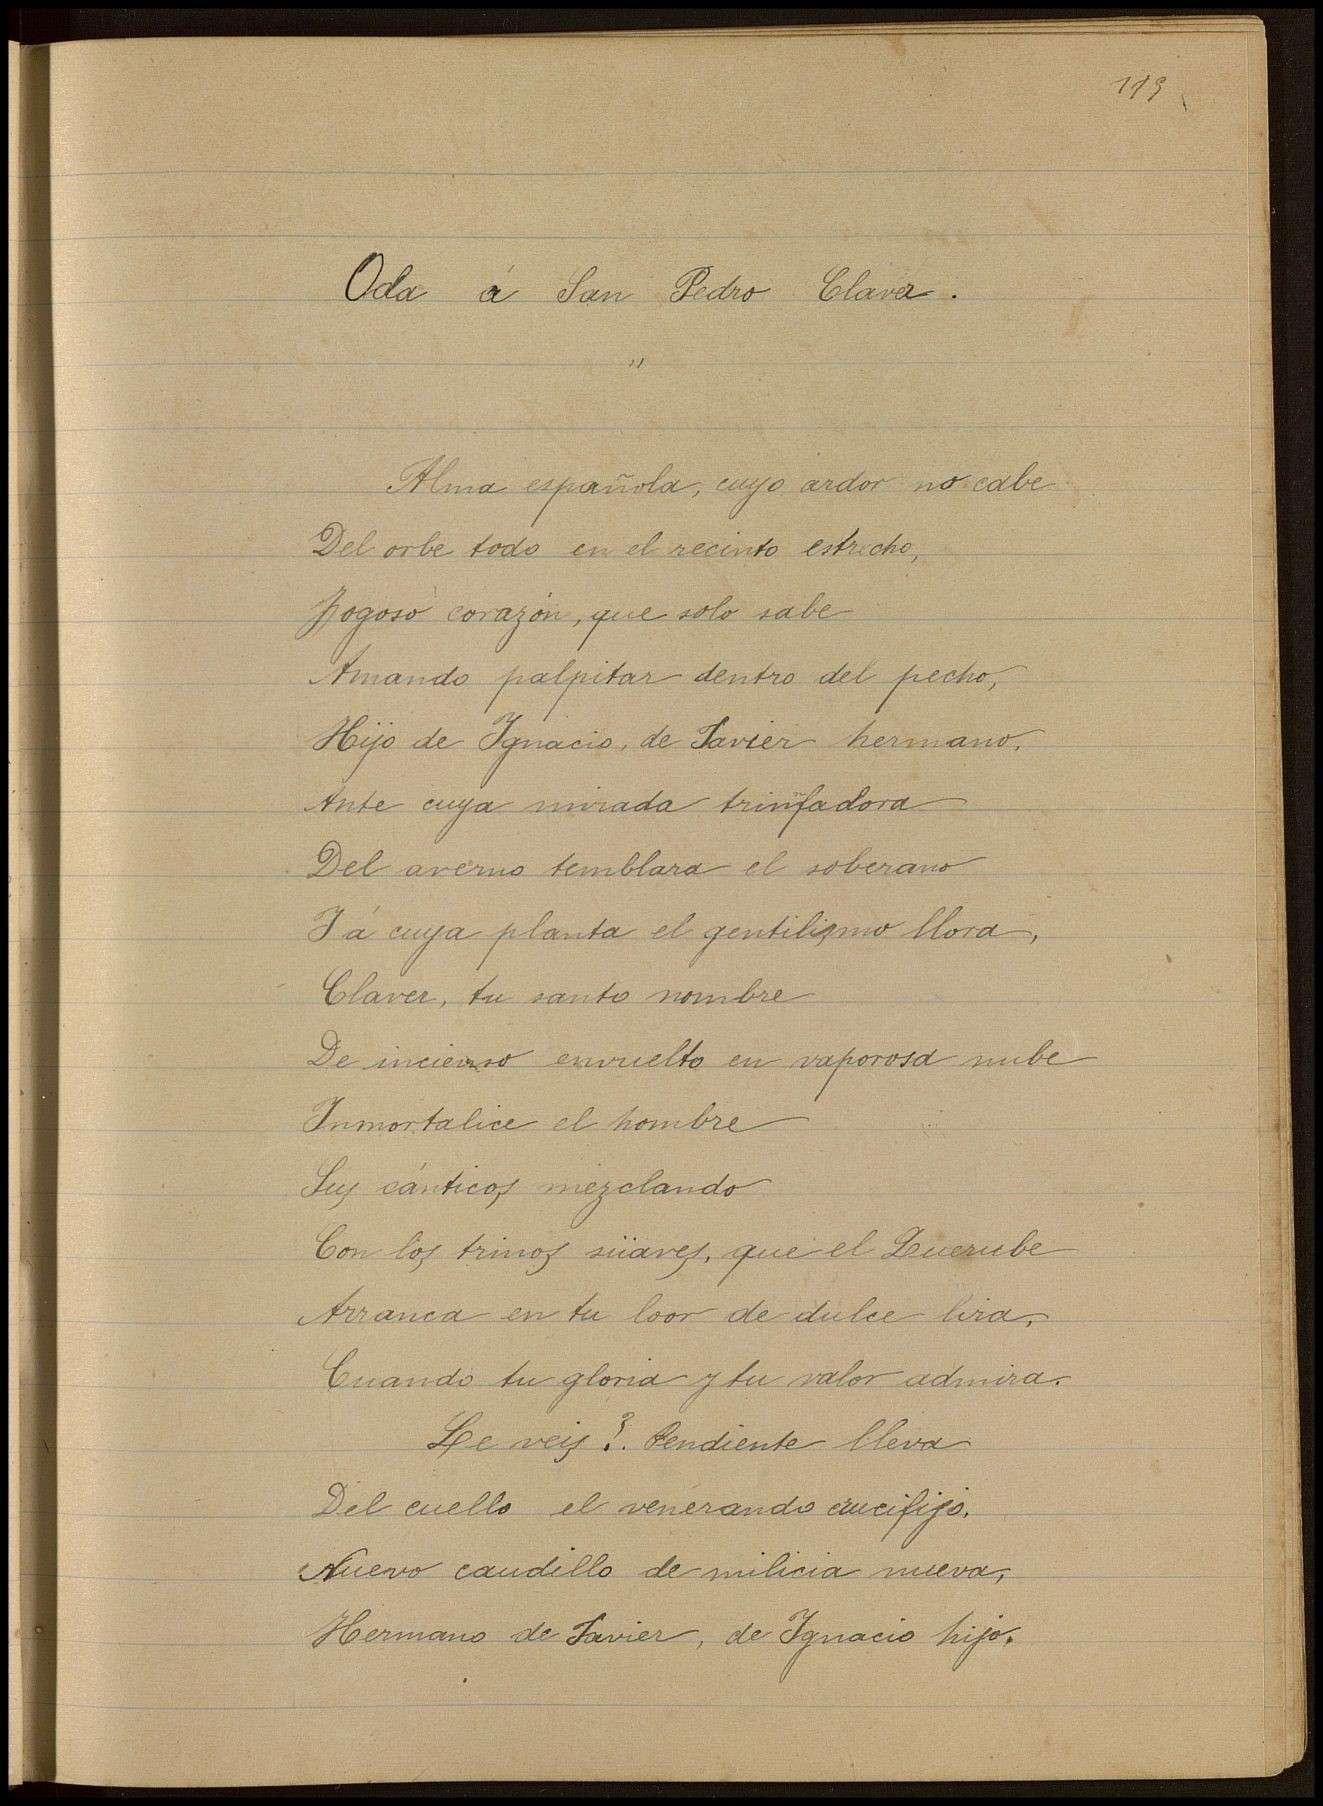 119
Oda á San Pedro Claver.
"
Alma española, cuyo ardor no cabe
Del orbe todo en el recinto estrecho,
Fogoso corazón, que solo sabe
Amando palpitar dentro del pecho,
Hijo de Ignacio, de Javier hermano,
Ante cuya mirada triunfadora
Del averno temblara el soberano
Y á cuya planta el gentilismo llora,
Claver, tu santo nombre
De incienso envuelto en vaporosa nube
Inmortalice el hombre
Sus cánticos mezclando
Con los trinos süaves, que el Querube
Arranca en tu loor de dulce lira,
Cuando tu gloria y tu valor admira.
Le veis?. Pendiente lleva
Del cuello el venerando crucifijo,
Nuevo caudillo de milicia nueva,
Hermano de Javier, de Ignacio hijo.